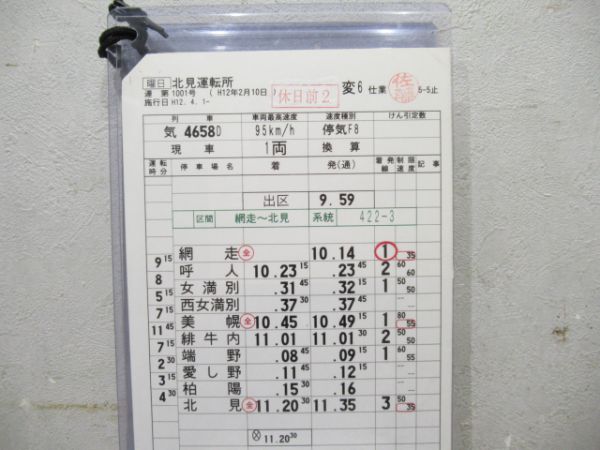 曜日 北見運転所
運 第 1001号 ( H12年2月10日 ) 休日前2 変6 仕業 佐 5-5止
施行日 H12. 4. 1-
列車 車両最高速度 速度種別 けん引定数
気 4658D 95km/h 停気F8
現車 1両 換算
運転時分 停車場名 着 発(通) 着発線 制限速度 記事
出区 9.59
区間 網走～北見 系統 422-3
網走 全 10.14 1 35
9 15
呼人 10.23 15 .23 45 2 60 60
8
女満別 .31 45 .32 15 1 50 50
5 15
西女満別 .37 30 .37 45
7 15
美幌 全 10.45 10.49 15 1 80 55
11 45
緋牛内 11.01 11.01 30 2 50 50
7 15
端野 .08 45 .09 15 1 60 55
2
愛し野 .11 45 .12 15
3 15
柏陽 .15 30 .16
4 30
北見 全 11.20 30 11.35 3 50 35
11.20 30